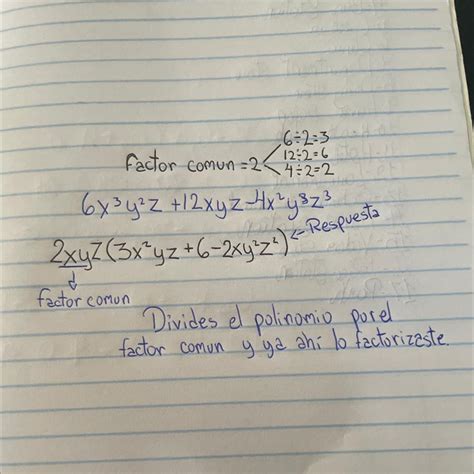 6÷2=3
12÷2=6
factor comun = 2
4÷2=2
6x³y²z + 12xyz - 4x²y⁸z³
2xyz (3x²yz + 6 - 2xy²z²) ← Respuesta
factor comun
Divides el polinomio por el
factor comun y ya ahí lo factorizaste.